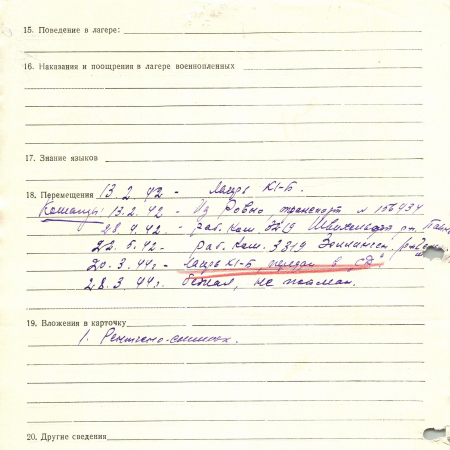 15. Поведение в лагере:
16. Наказания и поощрения в лагере военнопленных
17. Знание языков
18. Перемещения 13.2.42 - лагерь К1-Б.
Команды: 13.2.42 - Из Ровно, транспорт № 156434
28.4.42 - раб. ком.
22.5.42 - раб. ком. 3319
20.3.44 г. - лагерь К1-Б, передан в "СД"
28.3.44 г. бежал, не пойман.
19. Вложения в карточку
1. Рентгено-снимок.
20. Другие сведения